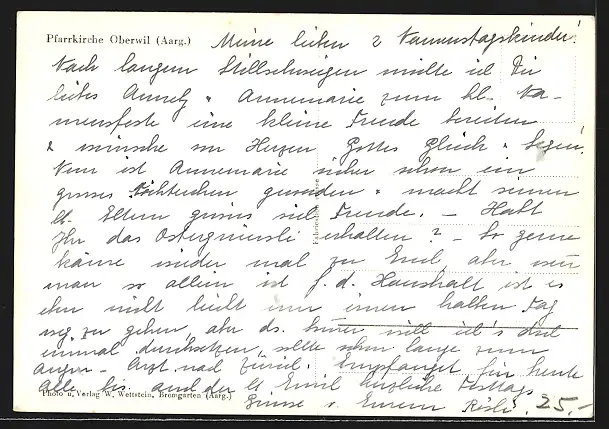 Pfarrkirche Oberwil (Aarg.) Meine lieben 2 Namenstagskinder!
Nach langem Stillschweigen möchte ich Dir
liebes Annely u. Annemarie zum hl. Na-
mensfeste eine kleine Freude bereiten
& wünsche von Herzen Gottes Glück & Segen!
Nun ist Annemarie sicher schon ein
grosses Töchterchen geworden u. macht seinen
lb. Eltern gewiss viel Freude. – Habt
Ihr das Ostergrüessli erhalten? – So gerne
käme wieder mal zu Emil aber wenn
man so allein ist f. d. Haushalt ist es
eben nicht leicht nur einen halben Tag
weg zu gehen, aber ds. will ich's doch
einmal durchsetzen, sollte schon lange zum
Augen-Arzt nach Zürich. Empfanget für heute
Alle, bis auf den lb Emil herzliche Festtags
Grüsse v. Eurem Rösli. 25.-
Photo u. Verlag W. Wettstein, Bremgarten (Aarg.)